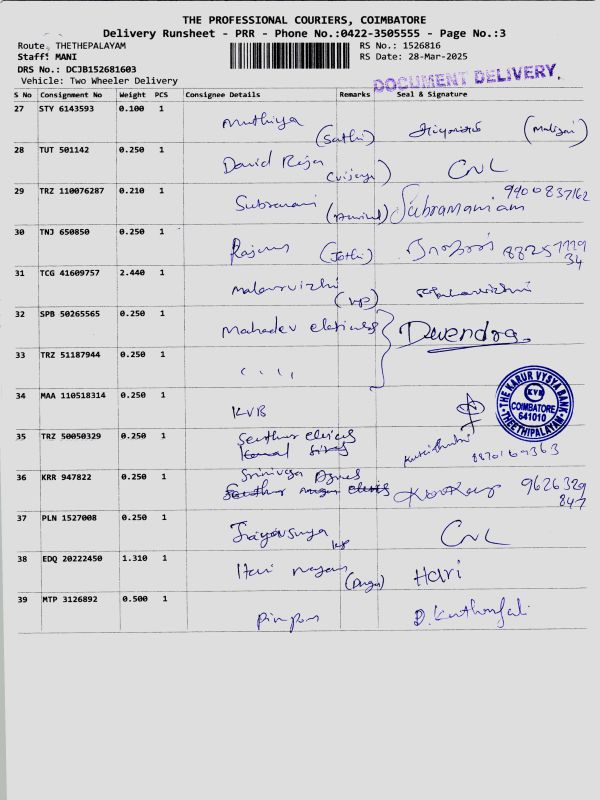 THE PROFESSIONAL COURIERS, COIMBATORE
Delivery Runsheet - PRR - Phone No.:0422-3505555 - Page No.:3
Route. THETHEPALAYAM
RS No.: 1526816
Staff: MANI
RS Date: 28-Mar-2025
DRS No.: DCJB152681603
Vehicle: Two Wheeler Delivery
DOCUMENT DELIVERY.
S No Consignment No Weight PCS Consignee Details Remarks Seal & Signature
27 STY 6143593 0.100 1 Muthiya (Sathi)
28 TUT 501142 0.250 1 David Raja (vijaya) CNL
29 TRZ 110076287 0.210 1 Subramani Subramaniam 9900837162
30 TNJ 650850 0.250 1 (Jothi)
31 TCG 41609757 2.440 1 malarvizhi (vp)
32 SPB 50265565 0.250 1 Mahadev Devendra
33 TRZ 51187944 0.250 1 " "
34 MAA 110518314 0.250 1 KVB
THE KARUR VYSYA BANK
KVB
COIMBATORE
641010
THEETHIPALAYAM
35 TRZ 50050329 0.250 1 Senthur
36 KRR 947822 0.250 1 Srinivasa Agnes 9626329
847
37 PLN 1527008 0.250 1 CNL
38 EDQ 20222450 1.310 1 Hari Hari
39 MTP 3126892 0.500 1